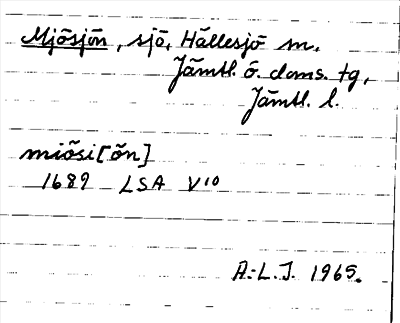 Mjösjön, sjö, Hällesjö sn.
Jämtl. ö. doms. tg,
Jämtl. l.
miösi[ön]
1689 LSA V10
A.-L.J. 1965.